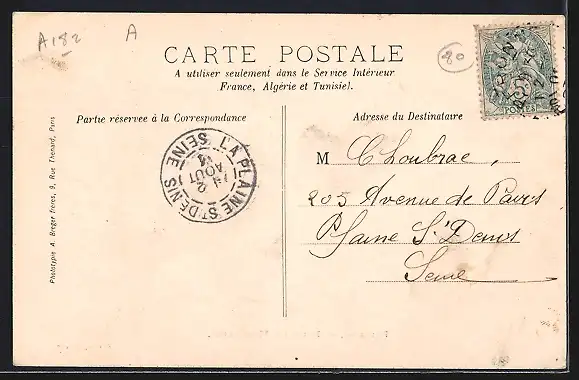 A182
A
80
CARTE POSTALE
A utiliser seulement dans le Service Intérieur
France, Algérie et Tunisie).
Partie réservée à la Correspondance
Adresse du Destinataire
LA PLAINE ST DENIS
SEINE
2
AOUT
M Choubrac,
205 Avenue de Paris
Plaine St Denis
Seine
Phototypie A. Breger frères, 9, Rue Thénard, Paris